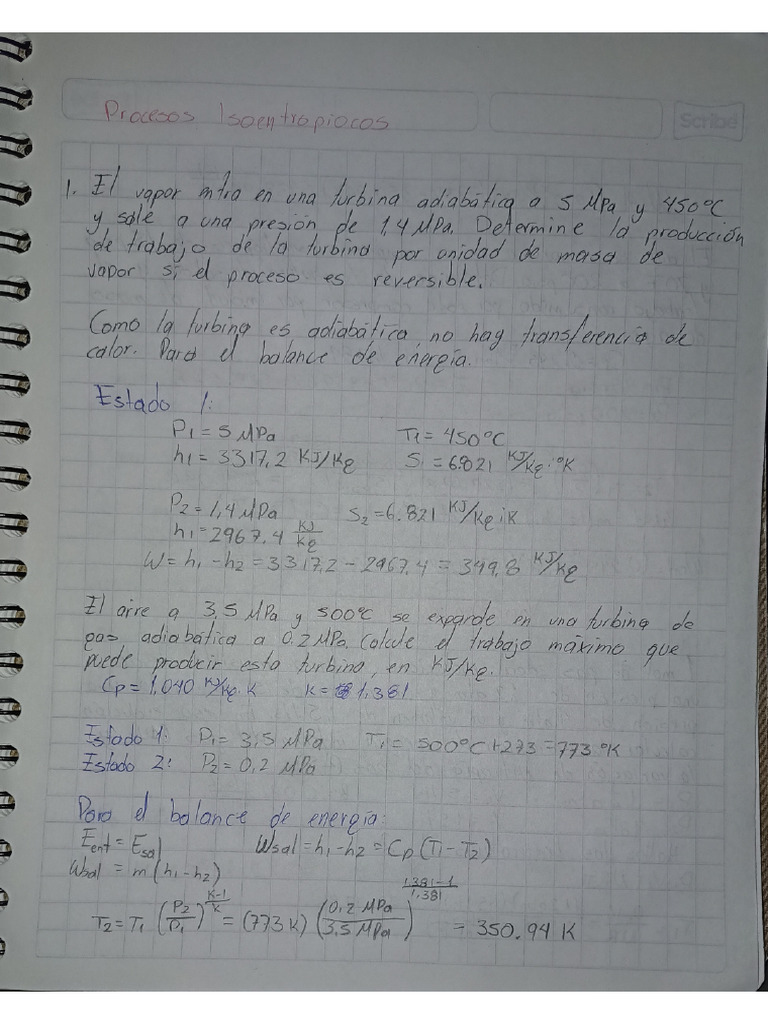 Procesos Isoentropiocos
Scribe
1. El vapor entra en una turbina adiabática a 5 MPa y 450°C
y sale a una presión de 1,4 MPa. Determine la producción
de trabajo de la turbina por unidad de masa de
vapor si el proceso es reversible.
Como la turbina es adiabática, no hay transferencia de
calor. Para el balance de energía.
Estado 1:
P1 = 5 MPa T1 = 450°C
h1 = 3317,2 KJ/Kg S1 = 6.821 KJ/Kg·°K
P2 = 1,4 MPa S2 = 6.821 KJ/Kg·K
h1 = 2967.4 KJ/Kg
W = h1 - h2 = 3317,2 - 2967,4 = 349,8 KJ/Kg
El aire a 3,5 MPa y 500°C se expande en una turbina de
gas adiabática a 0,2 MPa. Calcule el trabajo máximo que
puede producir esta turbina, en KJ/Kg.
Cp = 1,040 KJ/Kg·K K = 1,381
Estado 1: P1 = 3,5 MPa T1 = 500°C + 273 = 773 °K
Estado 2: P2 = 0,2 MPa
Para el balance de energía:
Eent = Esal Wsal = h1 - h2 = Cp (T1 - T2)
Wsal = m (h1 - h2)
T2 = T1 (P2/P1)^(K-1/K) = (773 K) (0,2 MPa/3,5 MPa)^(1,381-1/1,381) = 350.94 K